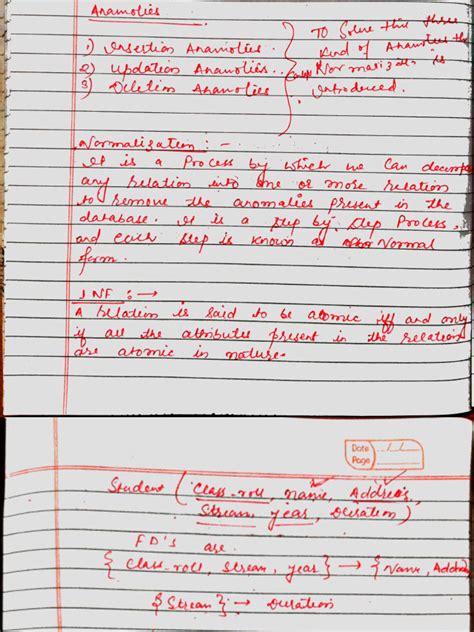 Anamolies
1) Insertion Anamolies.
2) Updation Anamolies..
3) Deletion Anamolies
To Solve this three
kind of Anamolies the
Concept Normalizat. is
introduced.
Normalization : -
It is a Process by which we can decomp
any relation into one or more relation
to remove the anomalies present in the
database. It is a step by step Process,
and each step is known as Normal
form.
1 NF : →
A relation is said to be atomic iff and only
if all the attributes present in the relation
are atomic in nature.
Date
Page
Student ( Class-roll, name, Address,
Stream, year, Duration )
FD's are
{ Class-roll, Stream, year } → { Name, Addres
{ Stream } → Duration